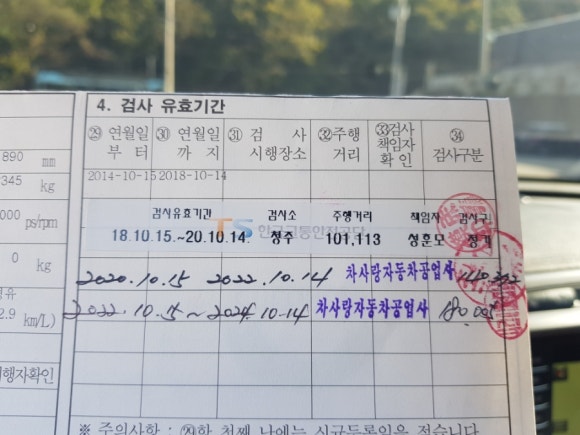 4. 검사 유효기간
㉙ 연월일 부터 ㉚ 연월일 까지 ㉛ 검사 시행장소 ㉜주행 거리 ㉝검사 책임자 확인 ㉞ 검사구분
890 mm
345 kg
000 ps/rpm
0 kg
2.9 km/L)
2014-10-15 2018-10-14
검사유효기간 검사소 주행거리 책임자 검사구분
TS 한국교통안전공단
18.10.15.~20.10.14. 성주 101,113 성훈모 정기
2020.10.15 2022.10.14 차사랑자동차공업사
2022.10.15~2024.10-14 차사랑자동차공업사 180,005
행자확인
※ 주의사항 : ㉙란 첫째 난에는 신규등록일을 적습니다